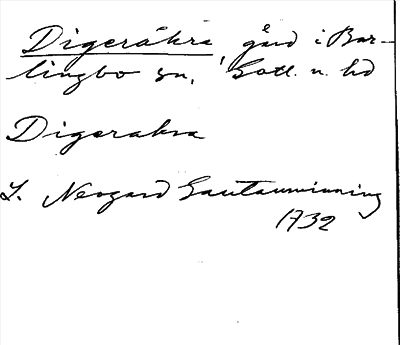 Digeråkra, gård i Bar-
lingbo sn, Gotl. n. hd
Digerakra
L. Neogard Gautauminning
1732